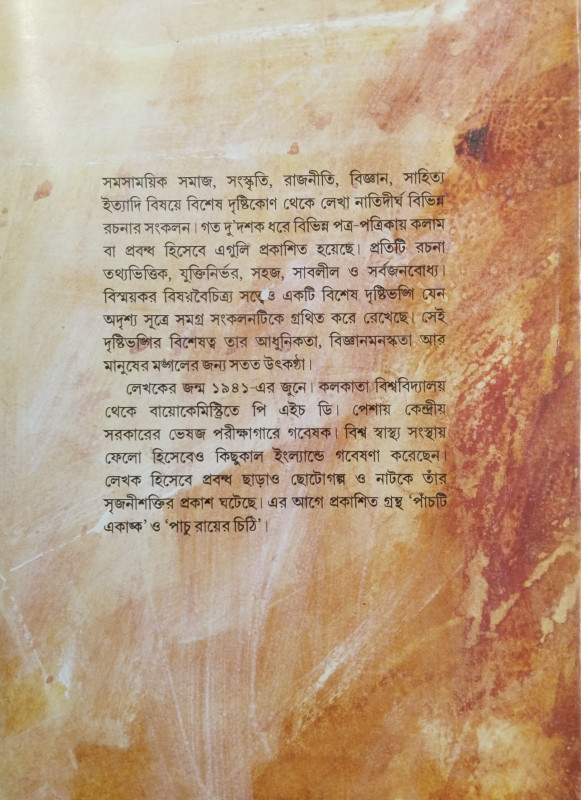 সমসাময়িক সমাজ, সংস্কৃতি, রাজনীতি, বিজ্ঞান, সাহিত্য
ইত্যাদি বিষয়ে বিশেষ দৃষ্টিকোণ থেকে লেখা নাতিদীর্ঘ বিভিন্ন
রচনার সংকলন। গত দু'দশক ধরে বিভিন্ন পত্র-পত্রিকায় কলাম
বা প্রবন্ধ হিসেবে এগুলি প্রকাশিত হয়েছে। প্রতিটি রচনা
তথ্যভিত্তিক, যুক্তিনির্ভর, সহজ, সাবলীল ও সর্বজনবোধ্য।
বিস্ময়কর বিষয়বৈচিত্র্য সত্ত্বেও একটি বিশেষ দৃষ্টিভঙ্গি যেন
অদৃশ্য সূত্রে সমগ্র সংকলনটিকে গ্রথিত করে রেখেছে। সেই
দৃষ্টিভঙ্গির বিশেষত্ব তার আধুনিকতা, বিজ্ঞানমনস্কতা আর
মানুষের মঙ্গলের জন্য সতত উৎকণ্ঠা।
লেখকের জন্ম ১৯৪১-এর জুনে। কলকাতা বিশ্ববিদ্যালয়
থেকে বায়োকেমিস্ট্রিতে পি এইচ ডি। পেশায় কেন্দ্রীয়
সরকারের ভেষজ পরীক্ষাগারে গবেষক। বিশ্ব স্বাস্থ্য সংস্থায়
ফেলো হিসেবেও কিছুকাল ইংল্যান্ডে গবেষণা করেছেন।
লেখক হিসেবে প্রবন্ধ ছাড়াও ছোটোগল্প ও নাটকে তাঁর
সৃজনীশক্তির প্রকাশ ঘটেছে। এর আগে প্রকাশিত গ্রন্থ 'পাঁচটি
একাঙ্ক' ও 'পাচু রায়ের চিঠি'।